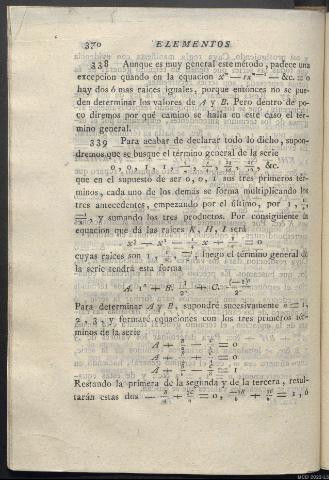 370 ELEMENTOS
338 Aunque es muy general este método, padece una
excepcion quando en la equacion
hay dos ó mas raices iguales, porque entónces no se pue-
den determinar los valores de A y B. Pero dentro de po-
co diremos por qué camino se halla en este caso el tér-
mino general.
339 Para acabar de declarar todo lo dicho, supon-
dremos que se busque el término general de la serie
0, 0, 1,
que en el supuesto de ser 0, 0, 1 sus tres primeros tér-
minos, cada uno de los demás se forma multiplicando los
tres antecedentes, empezando por el último, por 1,
y sumando los tres productos. Por consiguiente la
equacion que dá las raices K, H, I será
cuyas raices son 1, luego el término general de
la serie tendrá esta forma
Para determinar A y B, supondré sucesivamente n = 1,
2, 3, y formaré equaciones con los tres primeros tér-
minos de la serie
Restando la primera de la segunda y de la tercera, resul-
tarán estas dos